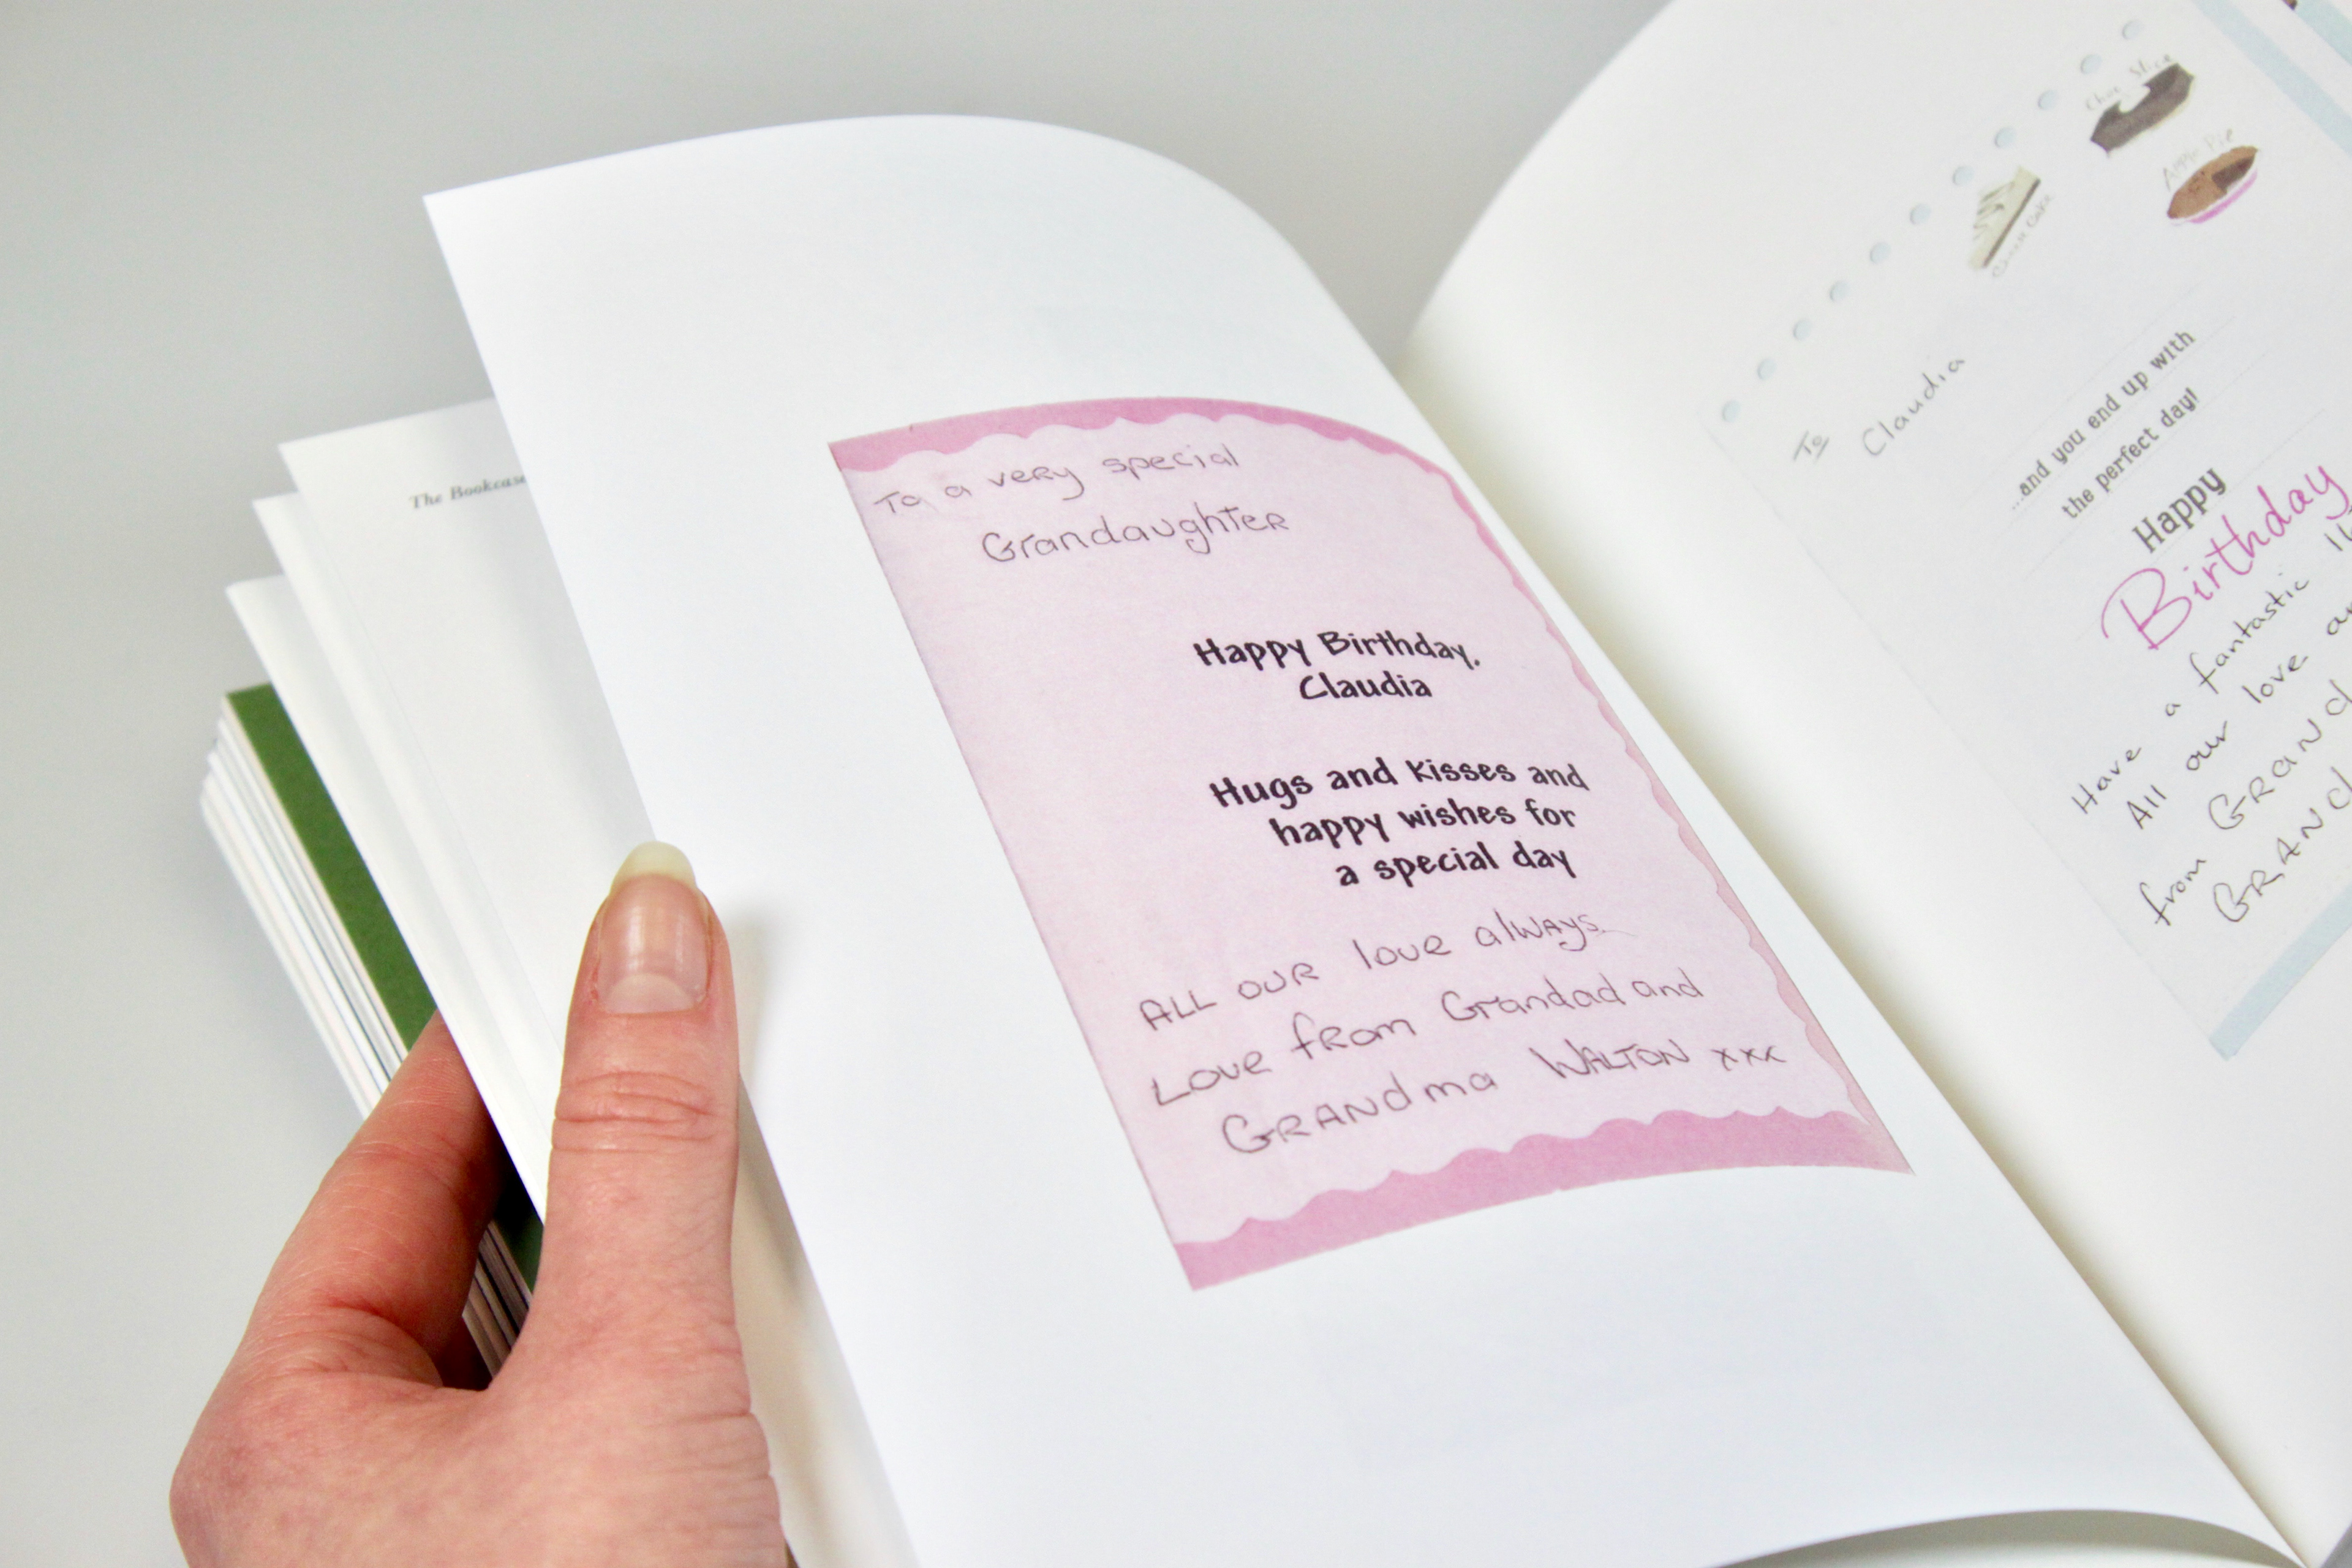 The Bookcase
To a very special
Grandaughter
Happy Birthday,
Claudia
Hugs and kisses and
happy wishes for
a special day
ALL our love always.
Love from Grandad and
Grandma WALTON xxx
Choc Slice
Apple Pie
Cheese Cake
To
Claudia
...and you end up with
the perfect day!
Happy
Birthday
Have a fantastic
All our love
from GRAND
GRAND